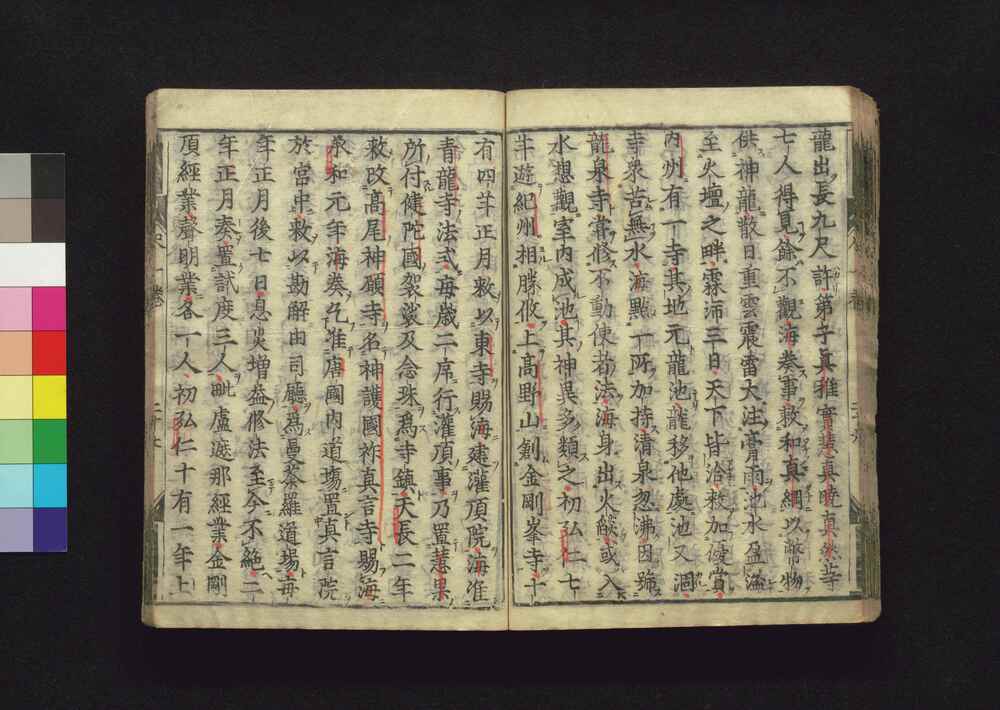 龍出長九尺許弟子真雅實慧真曉真然等
七人得見餘不觀海奏事敕和真綱以幣物
供神龍散日重雲震雷大注膏雨池水盈溢
至火壇之畔霖沛三日天下皆洽敕加優賞
內州有一寺其地元龍池龍移他處池又涸
寺衆苦無水海點一所加持清泉忽沸因號
龍泉寺嘗修不動使者法海身出火㷔或入
水想觀室內成池其神異多類之初弘仁七
年遊紀州相勝攸上高野山創金剛峯寺十
有四年正月敕以東寺賜海建灌頂院海准
青龍寺法式每歲二席行灌頂事乃置慧果
所付健陀國袈裟及念珠爲寺鎮天長二年
敕改高尾神願寺名神護國祚真言寺賜海
承和元年海奏乞准唐國內道場置真言院
於宮中敕以勘解由司廳爲曼荼羅道場每
年正月後七日息災增益修法至今不絕二
年正月奏置試度三人毗盧遮那經業金剛
頂經業聲明業各一人初弘仁十有一年上